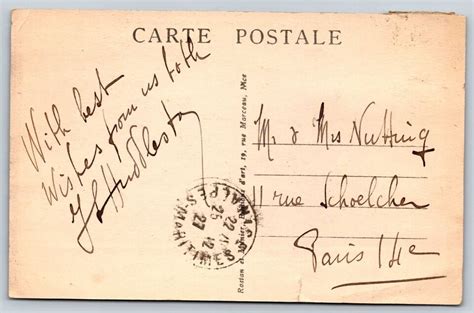 CARTE POSTALE
With best
Wishes from us both
Huddleston
M. & Mrs Nutting
11 rue Schoelcher
Paris 14e
22
25 12
27
ALPES-MARITIMES
Rostan et Munier, d'art, 19, rue Marceau, Nice